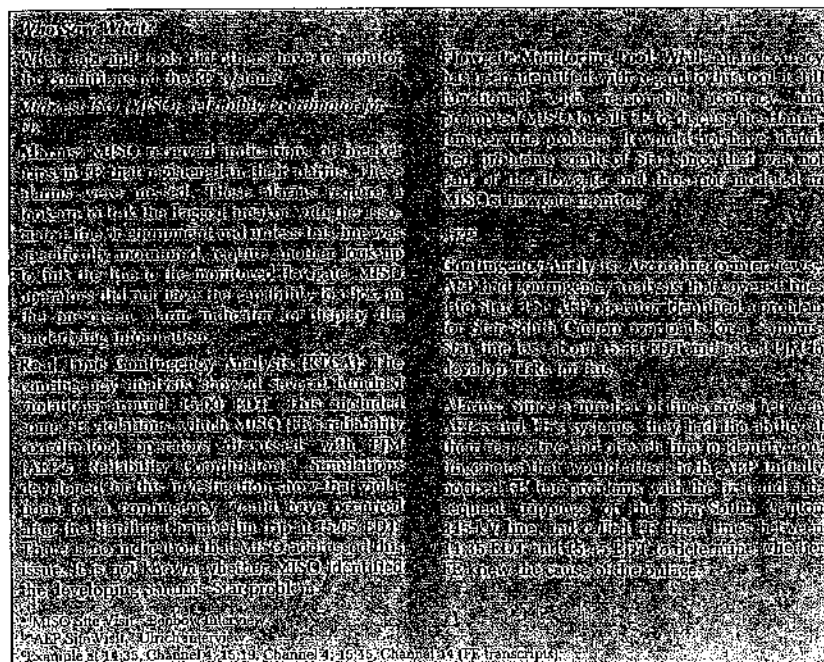 Who Saw What?
What data and tools did others have to monitor
the conditions on the FE system?
Midwest ISO (MISO), reliability coordinator for
FE
Alarms: MISO received indications of breaker
trips in FE that registered in their alarms. These
alarms were missed. These alarms require a
look-up to link the flagged breaker with the asso-
ciated line or equipment and unless this line was
specifically monitored, require another look-up
to link the line to the monitored flowgate. MISO
operators did not have the capability to click on
the on-screen alarm indicator to display the
underlying information.
Real Time Contingency Analysis (RTCA): The
contingency analysis showed several hundred
violations around 15:00 EDT. This included
some FE violations, which MISO (FE's reliability
coordinator) operators discussed with PJM
(AEP's Reliability Coordinator). Simulations
developed for this investigation show that viola-
tions for a contingency would have occurred
after the Harding-Chamberlin trip at 15:05 EDT.
There is no indication that MISO addressed this
issue. It is not known whether MISO identified
the developing Sammis-Star problem.
Flowgate Monitoring Tool: While an inaccuracy
has been identified with regard to this tool it still
functioned with reasonable accuracy and
prompted MISO to call FE to discuss the Hanna-
Juniper line problem. It would not have identi-
fied problems south of Star since that was not
part of the flowgate and thus not modeled in
MISO's flowgate monitor.
AEP
Contingency Analysis: According to interviews,
AEP had contingency analysis that covered lines
into Star. The AEP operator identified a problem
for Star-South Canton overloads for a Sammis-
Star line loss about 15:33 EDT and asked PJM to
develop TLRs for this.
Alarms: Since a number of lines cross between
AEP's and FE's systems, they had the ability at
their respective end of each line to identify con-
tingencies that would affect both. AEP initially
noticed FE line problems with the first and sub-
sequent trippings of the Star-South Canton
345-kV line, and called FE three times between
14:35 EDT and 15:45 EDT to determine whether
FE knew the cause of the outage.
MISO Site Visit, Benbow interview.
AEP Site Visit, Ulrich interview.
Example at 14:35, Channel 4; 15:19, Channel 4; 15:45, Channel 14 (FE transcripts).